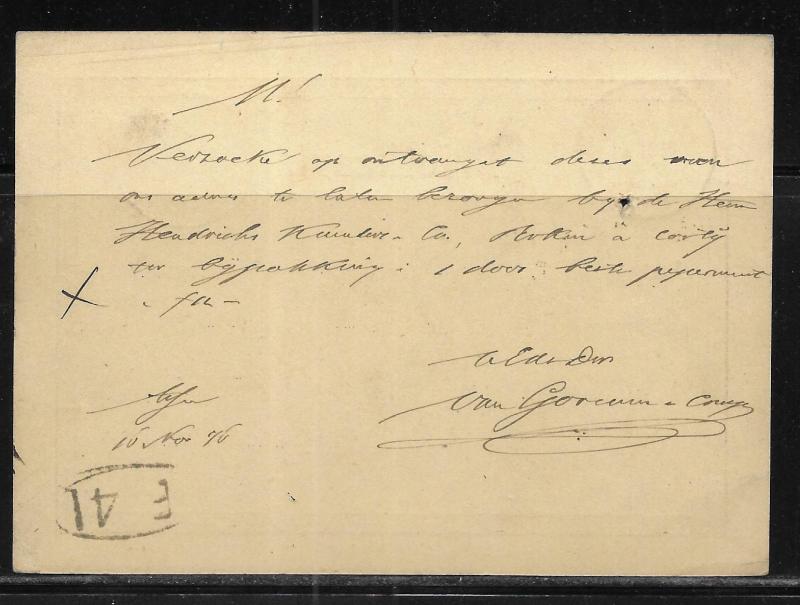 M!
Verzoeke op ontvangst dezes van
ons adres te laten bezorgen bij de Heeren
Hendrichs & Co., Rokin à costij
ter bijpakking: 1 doos beste pepermunt
à f
UEd. Dvs
Van Gorcum & Comp
Assen
16 Nov 76
F 41